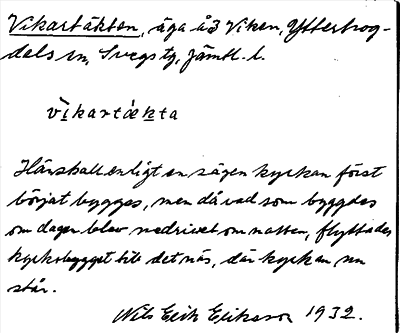 Vikartäkten, äga å3 Viken, Ytterhog-
dals sn, Svegs tg, Jämtl. l.
vìkartækta
Här skall enligt en sägen kyrkan först
börjat byggas, men då vad som byggdes
om dagen blev nedrivet om natten, flyttades
kyrkobygget till det näs, där kyrkan nu
står.
Nils Erik Eriksson 1932.